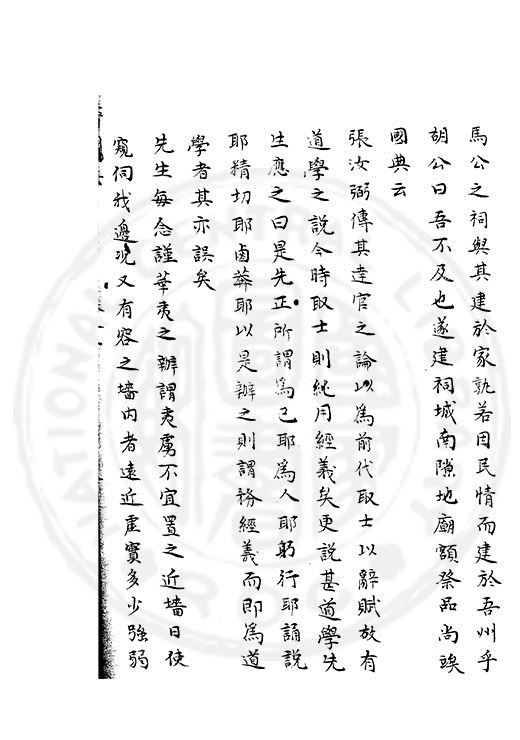 馬公之祠與其建於家孰若因民情而建於吾州乎
胡公曰吾不及也遂建祠城南隙地廟額祭品尚竢
國典云
張汝弼傳其達官之論以為前代取士以辭賦故有
道學之說今時取士則純用經義矣更說甚道學先
生應之曰是先正所謂為己耶為人耶躬行耶誦說
耶精切耶鹵莽耶以是辦之則謂務經義而即為道
學者其亦誤矣
先生每念謹華夷之辦謂夷虜不宜置之近墻日使
窺伺我邊况又有容之墻內者遠近虛實多少強弱